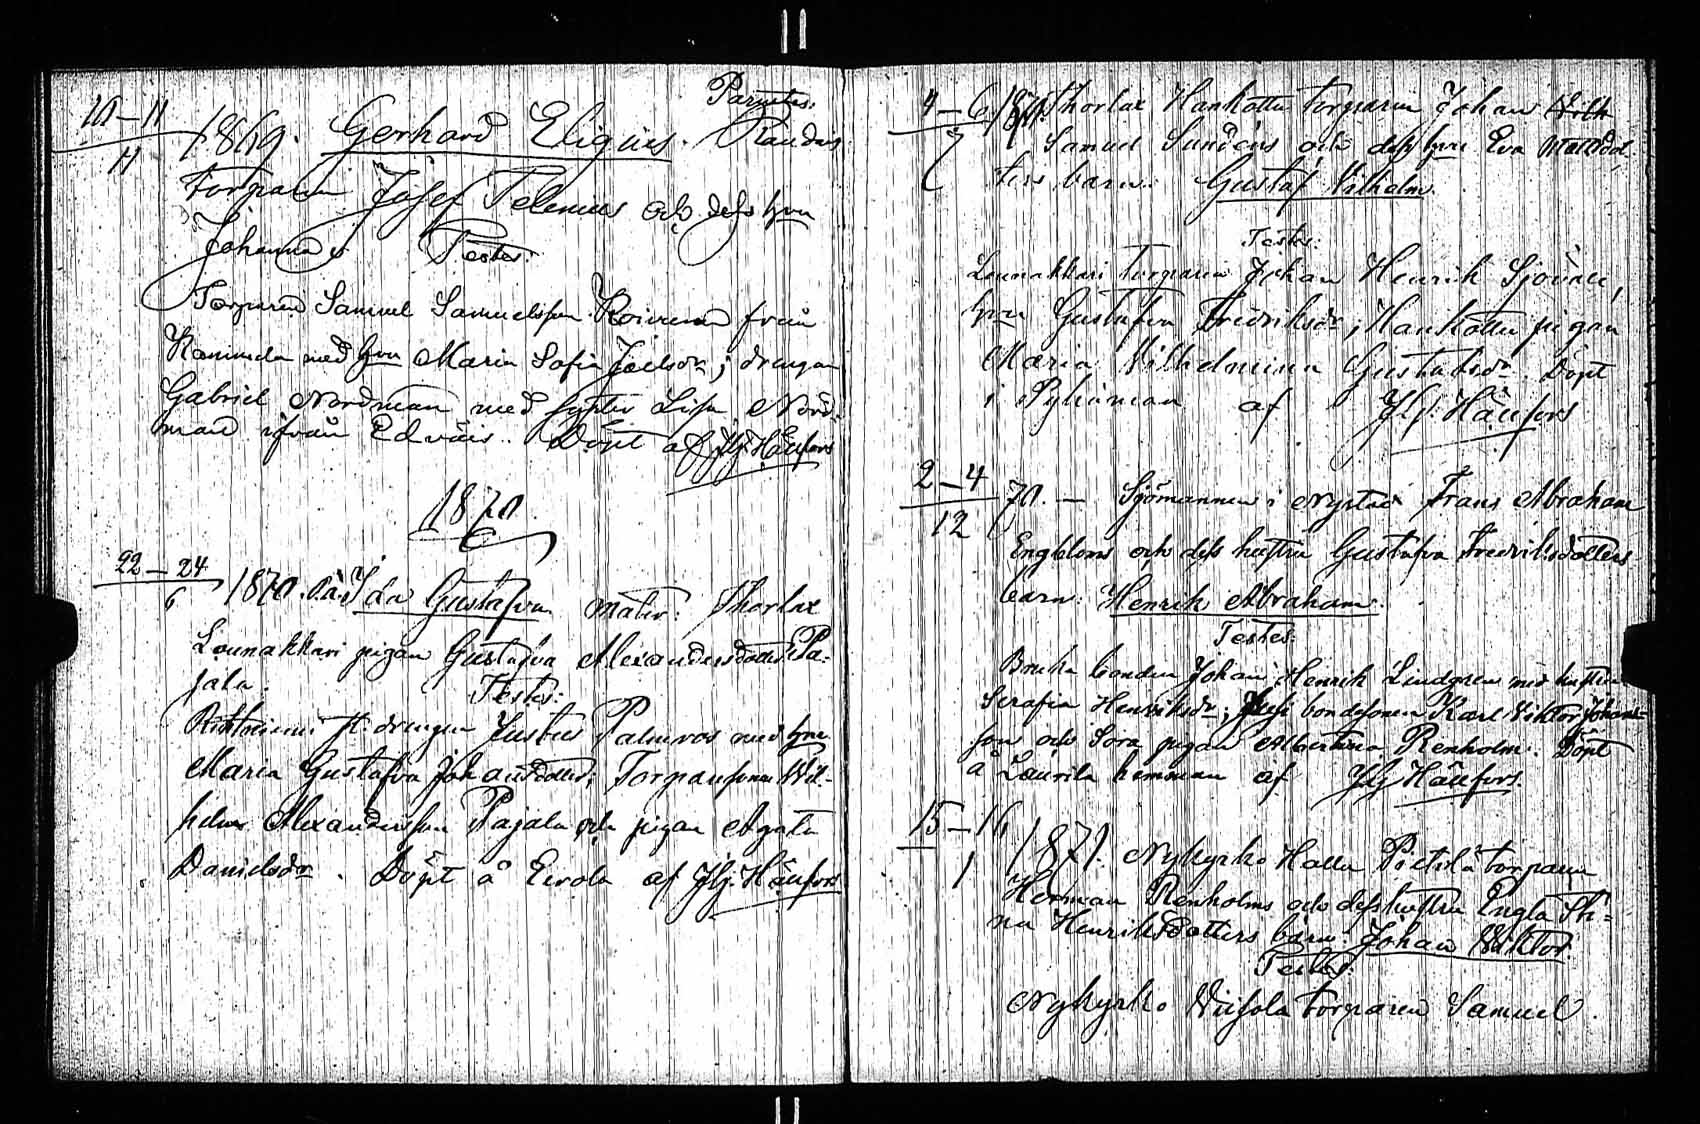 Parentes:
10–11
11
1869. Gerhard Eligius. Raudas
torparen Josef Telenius och dess hru
Johanna
Testes:
Torparen Samuel Samuelsson Koivenen från
med hru Maria Sofia Joelsdr; drengen
Gabriel Nordman med syster Lisa Nord-
man ifrån Edväis. Döpt af Hj. Hällfors
1870
22–24
6
1870. Ida Gustafva mater: Thorlax
Lounakkari pigan Gustafva Alexandersdotter Pa-
jala.
Testes:
drengen Justus Palmros med hru
Maria Gustafva Johansdotter; Torparesonen Wil-
helm Alexandersson Pajala och pigan Agata
Danielsdr. Döpt å Eerola af Hj. Hällfors
4–6
7
Thorlax Hankottu torparen Johan
Samuel Sundéns och dess hru Eva Mattsdot-
ters barn: Gustaf Vilhelm.
Testes:
Lounakkari torparen Johan Henrik
hru Gustafva Fredriksdr; Hankottu pigan
Maria Vilhelmina Gustafsdr. Döpt
i Pyhämaa af Hj. Hällfors
2–4
12
70. — Sjömannen i Nystad Frans Abraham
Engbloms och dess hustru Gustafva Fredriksdotters
barn: Henrik Abraham.
Testes:
bonden Johan Henrik Lindgren med hustru
Serafia Henriksdr; bondesonen Karl Viktor Johans-
son och Sora pigan Albertina Renholm. Döpt
å Laurila hemman af Hj Hällfors.
15–16
1
1871. Nykyrko Halla Pietilä torparen
Herman Renholms och dess hustru Engla Sti-
na Henriksdotters barn: Johan Viktor.
Testes:
Nykyrko torparen Samuel